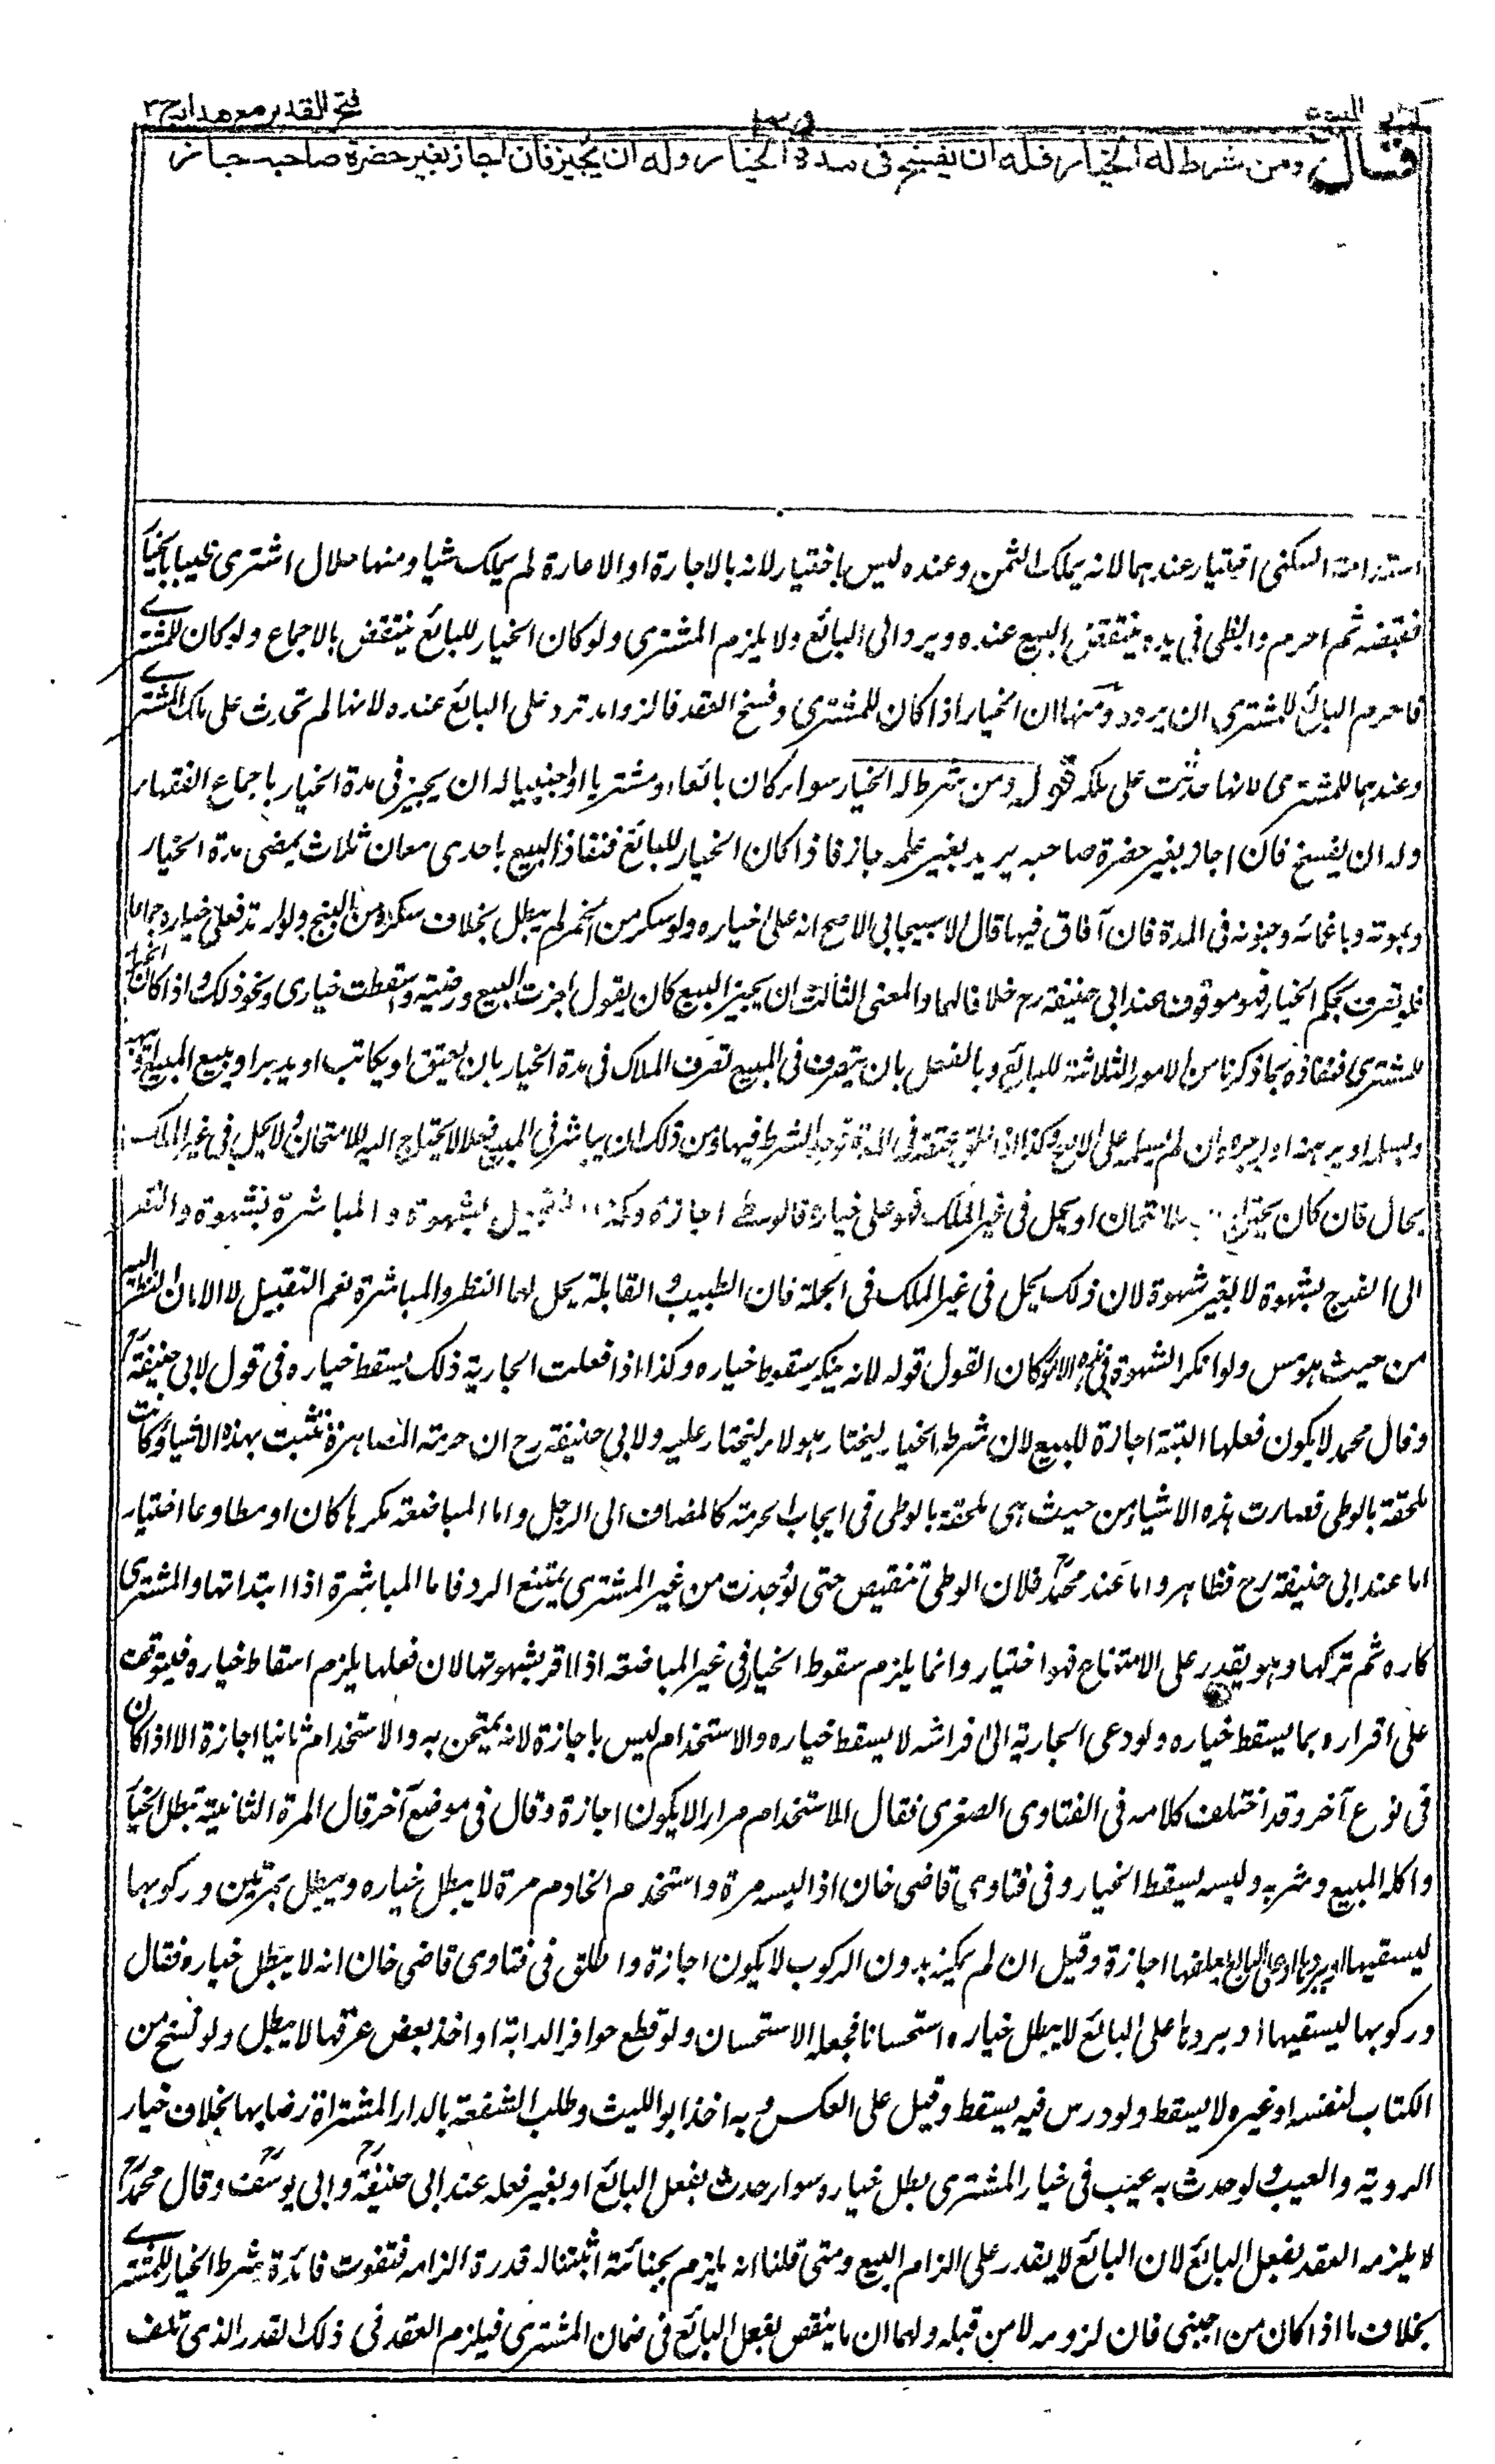 كتاب البيوع
فتح القدير مع هداية ج ٣
قال ومن شرط له الخيار فله ان يفسخ فى مدة الخيار وله ان يجيز فان اجاز بغير حضرة صاحبه جاز
استدامة السكنى اختيار عندهما لانه يملك الثمن وعنده ليس باختيار لانه بالاجارة او الاعارة لم يملك شيا ومنها حلال اشترى ظبيا بالخيار
فقبضه ثم احرم والظبى فى يده ينتقض البيع عنده ويرد الى البائع ولا يلزم المشترى ولو كان الخيار للبائع ينتقض بالاجماع ولو كان للمشترى
فاحرم البائع للمشترى ان يرده ومنها ان الخيار اذا كان للمشترى وفسخ العقد فالزوائد ترد على البائع عنده لانها لم تحدث على ملك المشترى
وعندهما للمشترى لانها حدثت على ملكه قوله ومن شرط له الخيار سواء كان بائعا او مشتريا او اجنبيا له ان يجيز فى مدة الخيار باجماع الفقهاء
وله ان يفسخ فان اجاز بغير حضرة صاحبه يريد بغير علمه جاز فاذا كان الخيار للبائع فنفاذ البيع باحدى معان ثلاث بمضى مدة الخيار
وبموته وباغمائه وجنونه فى المدة فان آفاق فيها قال الاسبيجابى الاصح انه على خياره ولو سكر من الخمر لم يبطل بخلاف سكره من البنج ولو ارتد فعلى خياره جماعا
فلو تصرف بحكم الخيار فهو موقوف عند ابى حنيفة رح خلافا لهما والمعنى الثالث ان يجيز البيع كان يقول اجزت البيع ورضيته واسقطت خيارى ونحو ذلك واذا كان الخيار
للمشترى فنفاذه بما ذكرنا من الامور الثلاثة للبائع وبالفعل بان يتصرف فى المبيع تصرف الملاك فى مدة الخيار بان يعتق او يكاتب او يدبر او يبيع المبيع او يهبه
ويسلمه او يرهنه او يوجره وان لم يسلمه على الاصح وكذا اذا علق عتقه فى المدة فوجد الشرط فيها ومن ذلك ان يباشر فى المبيع فعلا لا يحتاج اليه للامتحان ولا يحل فى غير الملك
بحال فان كان يحتاج للامتحان او يحل فى غير الملك فهو على خياره فالوطى اجازة وكذا التقبيل بشهوة والمباشرة بشهوة والنظر
الى الفرج بشهوة لا بغير شهوة لان ذلك يحل فى غير الملك فى الجملة فان الطبيب والقابلة يحل لهما النظر والمباشرة نعم التقبيل لا الا ان النظر اليه
من حيث هو مس ولو انكر الشهوة فى هذه الامور كان القول قوله لانه ينكر سقوط خياره وكذا اذا فعلت الجارية ذلك يسقط خياره فى قول لابى حنيفة رح
وقال محمد لا يكون فعلها البتة اجازة للبيع لان شرط الخيار ليختار هو لا ليختار عليه ولابى حنيفة رح ان حرمة المصاهرة تثبت بهذه الاشياء وكانت
ملحقة بالوطى فصارت هذه الاشياء من حيث هى ملحقة بالوطى فى ايجاب الحرمة كالمضاف الى الرجل واما المباضعة مكرها كان او مطاوعا اختيار
اما عند ابى حنيفة رح فظاهر واما عند محمد رح فلان الوطى تنقيص حتى لو وجدت من غير المشترى يمتنع الرد فاما المباشرة اذا ابتدائها والمشترى
كاره ثم تركها وهو يقدر على الامتناع فهو اختيار وانما يلزم سقوط الخيار فى غير المباضعة اذا اقر بشهوتها لان فعلها يلزم اسقاط خياره فيتوقف
على اقراره بما يسقط خياره ولو دعى الجارية الى فراشه لا يسقط خياره والاستخدام ليس باجازة لانه يمتحن به والاستخدام ثانيا اجازة الا اذا كان
فى نوع آخر وقد اختلف كلامه فى الفتاوى الصغرى فقال الاستخدام مرارا لا يكون اجازة وقال فى موضع آخر قال المرة الثانية تبطل الخيار
واكله المبيع وشربه ولبسه يسقط الخيار وفى فتاوى قاضى خان اذا لبسه مرة واستخدم الخادم مرة لا يبطل خياره ويبطل بمرتين وركوبها
ليسقيها او يردها على البائع او يعلفها اجازة وقيل ان لم يمكنه بدون الركوب لا يكون اجازة واطلق فى فتاوى قاضى خان انه لا يبطل خياره فقال
وركوبها ليسقيها او يردها على البائع لا يبطل خياره استحسانا فجعله الاستحسان ولو قطع حوافر الدابة او اخذ بعض عرفها لا يبطل ولو نسخ من
الكتاب لنفسه او غيره لا يسقط ولو درس فيه يسقط وقيل على العكس وبه اخذ ابو الليث وطلب الشفعة بالدار المشتراة رضا بها بخلاف خيار
الروية والعيب ولو حدث به عيب فى خيار المشترى بطل خياره سواء حدث بفعل البائع او بغير فعله عند ابى حنيفة رح وابى يوسف رح وقال محمد رح
لا يلزمه العقد بفعل البائع لان البائع لا يقدر على الزام البيع ومتى قلنا انه يلزم بجنايته اثبتنا له قدرة الزامه فتفوت فائدة شرط الخيار للمشترى
بخلاف ما اذا كان من اجنبى فان لزومه لا من قبله ولهما ان ما ينقص بفعل البائع فى ضمان المشترى فيلزم العقد فى ذلك القدر الذى تلف